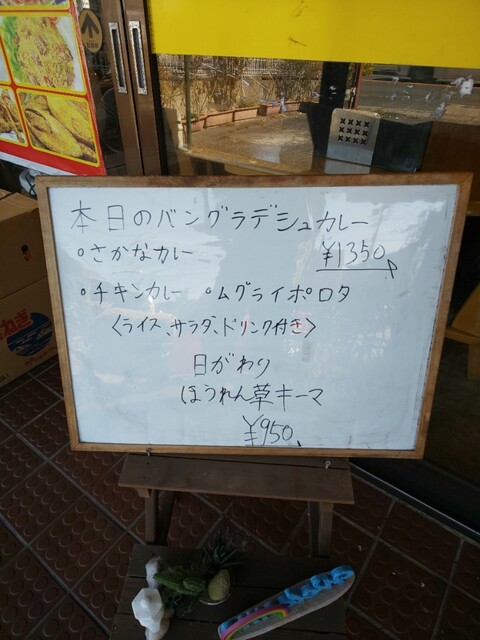 本日のバングラデシュカレー
○さかなカレー ¥1350
○チキンカレー ○ムグライポロタ
〈ライス、サラダ、ドリンク付き〉
日がわり
ほうれん草キーマ
¥950
ねぎ